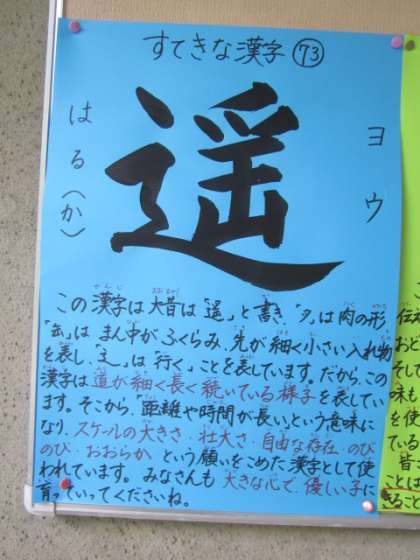 すてきな漢字 73
ヨウ
遥
はる(か)
この漢字は大昔は「遙」と書き「夕」は肉の形
「缶」は まん中が ふくらみ、先が細く小さい入れ物
を表し「辶」は「行く」ことを表しています。だから、この
漢字は道が細く長く続いている様子を表してい
ます。そこから、「距離や時間が長い」という意味に
なり、スケールの大きさ・壮大さ・自由な存在・のび
のび・おおらか という願いをこめた漢字として使
われています。みなさんも 大きな心で、優しい子に
育っていってくださいね。